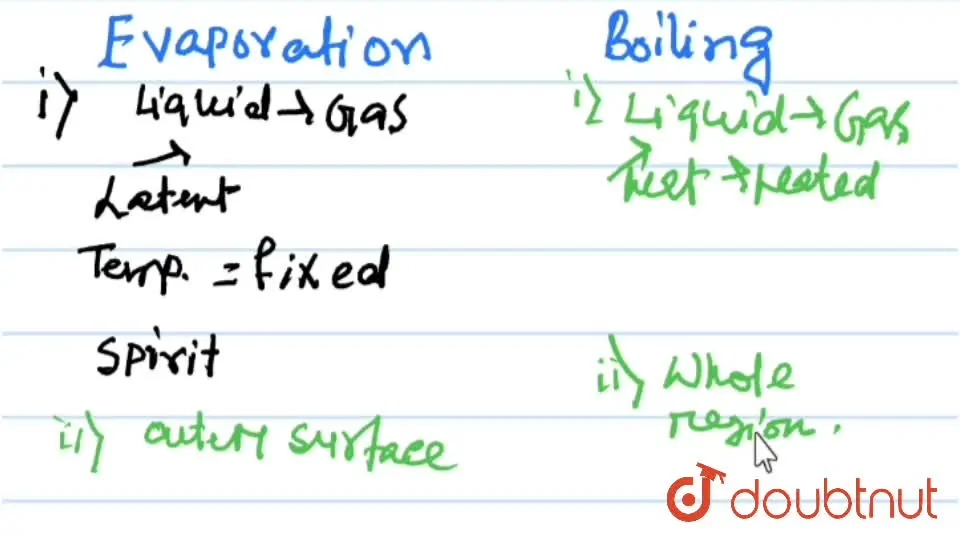 Evaporation
i) Liquid → Gas
Latent
Temp. = fixed
Spirit
ii) outer surface
Boiling
i) Liquid → Gas
heat → heated
ii) Whole
region.
doubtnut